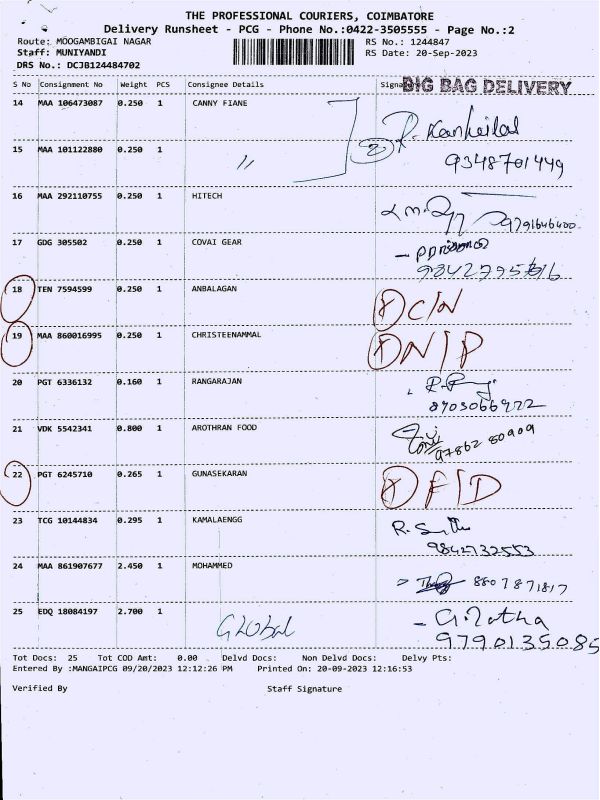 THE PROFESSIONAL COURIERS, COIMBATORE
Delivery Runsheet - PCG - Phone No.:0422-3505555 - Page No.:2
Route: MOOGAMBIGAI NAGAR RS No.: 1244847
Staff: MUNIYANDI RS Date: 20-Sep-2023
DRS No.: DCJB124484702
S No Consignment No Weight PCS Consignee Details BIG BAG DELIVERY
14 MAA 106473087 0.250 1 CANNY FIANE
2
15 MAA 101122880 0.250 1 〃 9348701449
16 MAA 292110755 0.250 1 HITECH 9791646400
17 GDG 305502 0.250 1 COVAI GEAR
18 TEN 7594599 0.250 1 ANBALAGAN X C/N
19 MAA 860016995 0.250 1 CHRISTEENAMMAL X N/P
20 PGT 6336132 0.160 1 RANGARAJAN
21 VDK 5542341 0.800 1 AROTHRAN FOOD 97862 80909
22 PGT 6245710 0.265 1 GUNASEKARAN X F/D
23 TCG 10144834 0.295 1 KAMALAENGG
9842732553
24 MAA 861907677 2.450 1 MOHAMMED 8807871817
25 EDQ 18084197 2.700 1 GLOBAL
9790135085
Tot Docs: 25 Tot COD Amt: 0.00 Delvd Docs: Non Delvd Docs: Delvy Pts:
Entered By :MANGAIPCG 09/20/2023 12:12:26 PM Printed On: 20-09-2023 12:16:53
Verified By Staff Signature